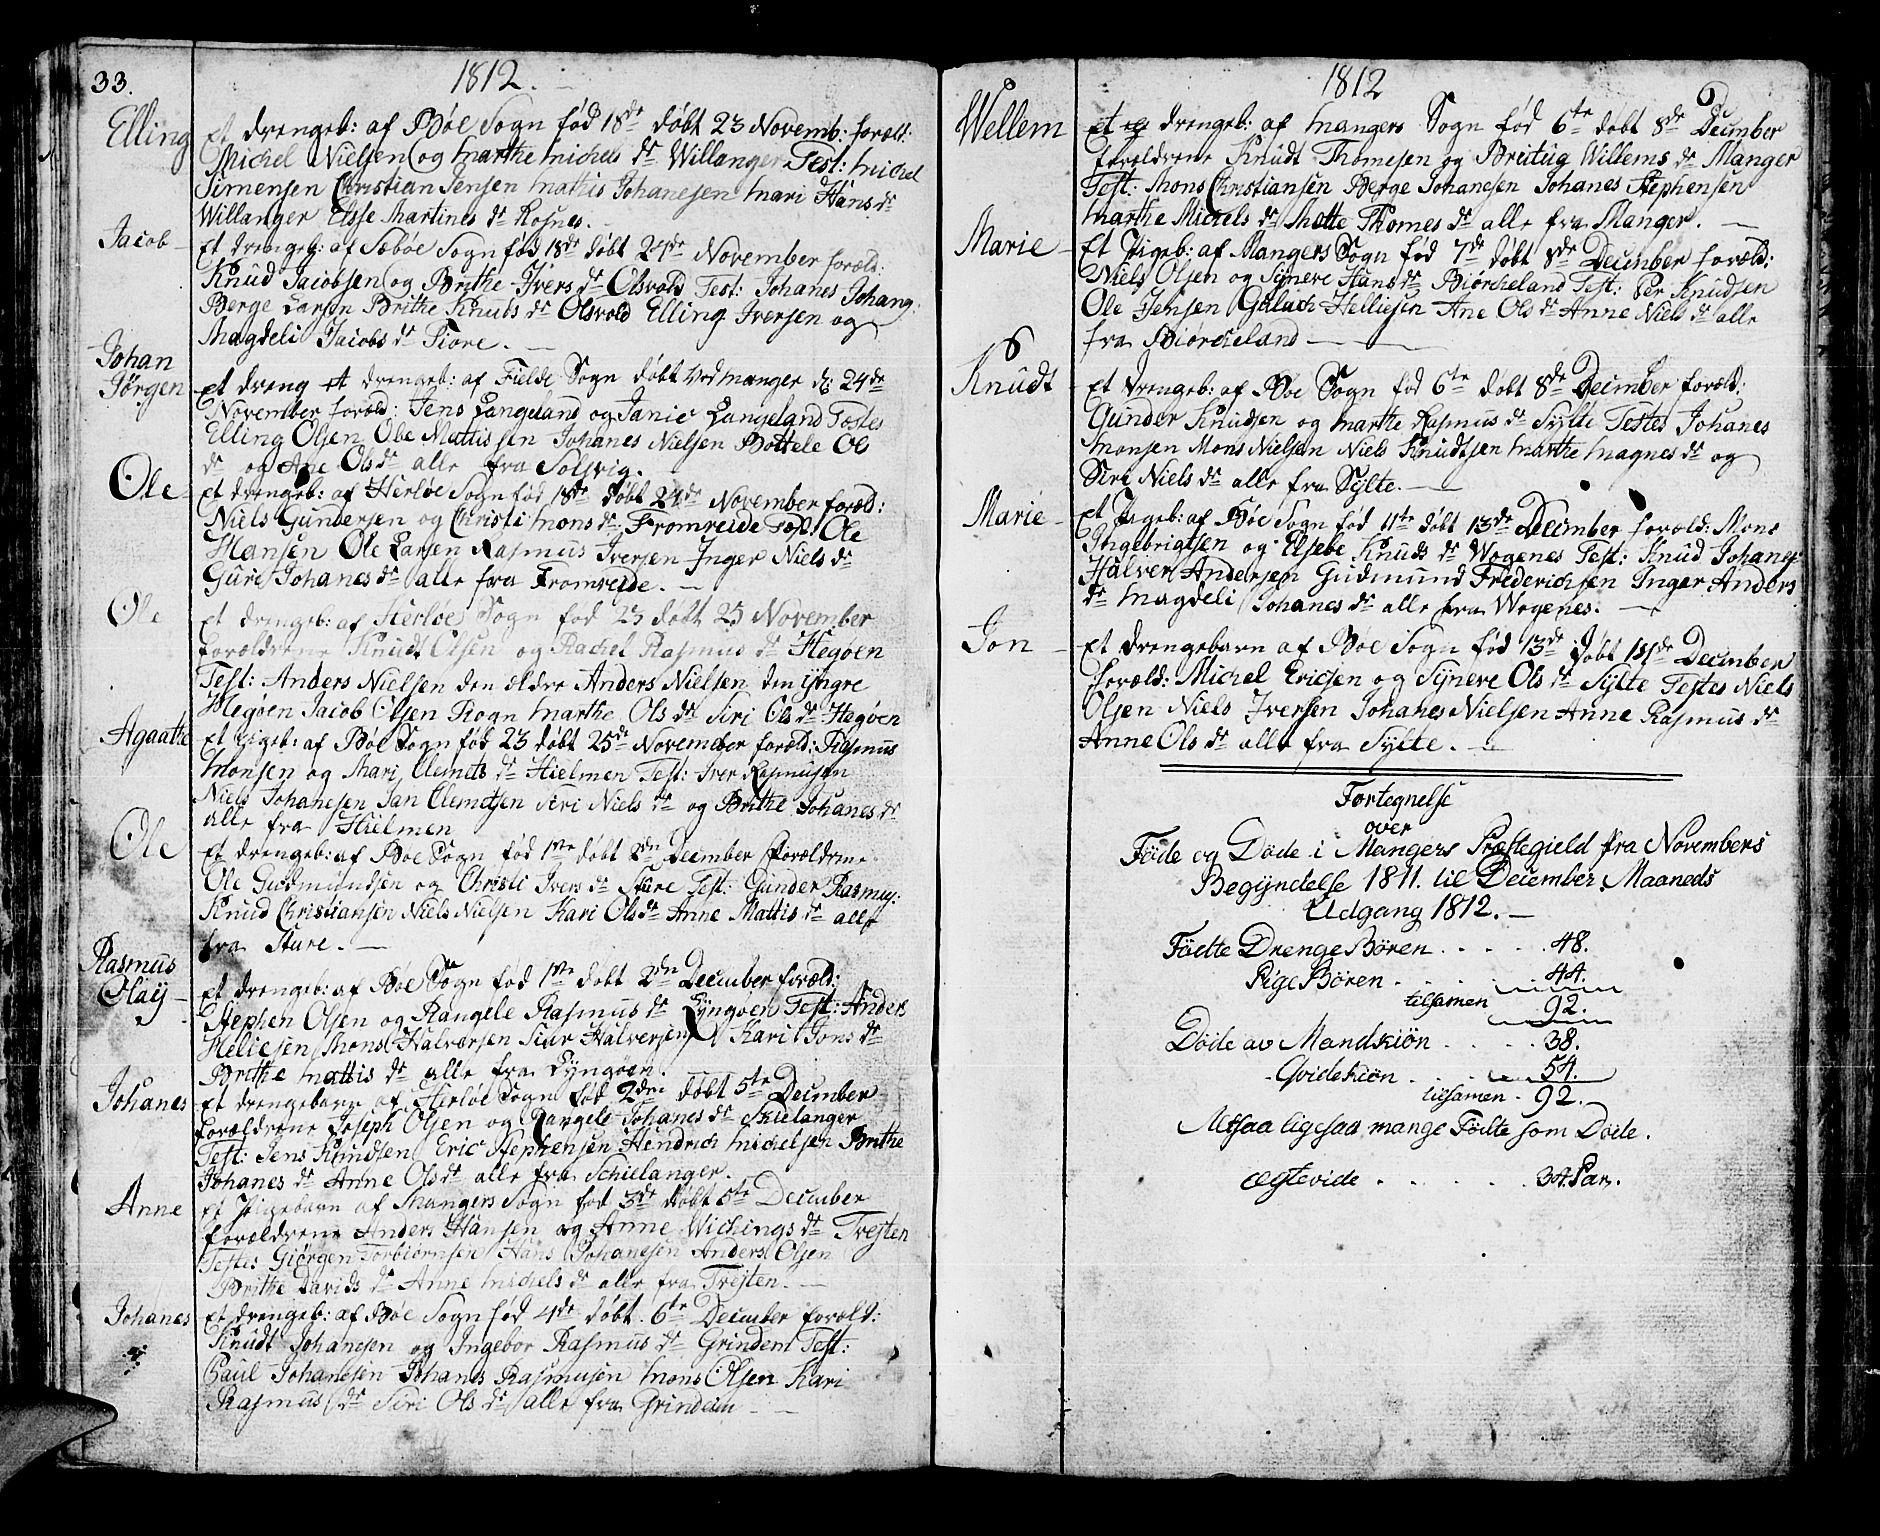 33.
1812.
Elling
Et drengeb: af Bøe Sogn fød 18de døbt 23 Novemb: foræld:
Michel Nielsen og Marthe Michels dr Willanger Test: Michel
Simensen Christian Jensen Mathis Johanesen Mari Hans dr
Willanger Elsse Martines dr Rosnes.
Jacob
Et drengeb: af Sæbøe Sogn fød 18de døbt 24de November foræld:
Knud Jacobsen og Brithe Ivers dr Olsvold Test: Johanes Johang:
Berge Larsen Brithe Knuds dr Olsvold Elling Iversen og
Magdeli Jacobs dr Fiore.
Johan
Jørgen
Et dreng et drengeb: af Fielde Sogn døbt ved Manger d: 24de
November foræld: Jens Langeland og Janic Langeland Testes
Elling Olsen Obe Mattissen Johanes Nielsen Bottele Ols
dr og Ane Ols dr alle fra Solsvig.
Ole
Et drengeb: af Herløe Sogn fød 18de døbt 24de November foræld:
Niels Gundersen og Christi Mons dr Fromreide Test: Ole
Hansen Ole Larsen Rasmus Iversen Inger Niels dr
Guri Johanes dr alle fra Fromreide.
Ole
Et drengeb: af Herløe Sogn fød 23 døbt 25 November
Forældrene Knudt Olsen og Rachel Rasmus dr Hegøen
Test: Anders Nielsen den ældre Anders Nielsen den yngre
Hegøen Jacob Olsen Rogn Marthe Ols dr Siri Ols dr Hegøen
Agaathe
Et Pigeb: af Bøe Sogn fød 23 døbt 25de November foræld: Rasmus
Monsen og Mari Clemets dr Hielmen Test: Iver Rasmusen
Niels Johanesen Jan Clemetsen Siri Niels dr og Brithe Johanes dr
alle fra Hielmen
Ole
Et drengeb: af Bøe Sogn fød 1ste døbt 2den December Forældrene
Ole Gudmundsen og Christi Ivers dr Sture Test: Gunder Rasmus:
Knud Christiansen Niels Nielsen Kari Ols dr Anne Mattis dr alle
fra Sture.
Rasmus
Olay
Et drengeb: af Bøe Sogn fød 1ste døbt 2den December foræld:
Stephen Olsen og Rangele Rasmus dr Lyngøen Test: Anders
Heliesen Mons Halversen Siur Halversen Kari Jons dr
Brithe Mattis dr alle fra Lyngøen.
Johanes
Et drengebarn af Herløe Sogn fød 2den døbt 5te December
Forældrene Joseph Olsen og Rangele Johanes dr Skielanger
Test: Jens Knudsen Eric Stephensen Hendrich Michelsen Brithe
Johanes dr Anne Ols dr alle fra Schielanger.
Anne
Et Pigebarn af Mangers Sogn fød 3de døbt 5te December
Forældrene Anders Hansen og Anne Wichings dr Trejten
Testes Giørgen Torbiørnsen Hans Johanesen Anders Olsen
Brithe Davids dr Anne Michels dr alle fra Trejten.
Johanes
Et drengeb: af Bøe Sogn fød 4de døbt 6te December foræld:
Knudt Johanesen og Ingebor Rasmus dr Grindem Test:
Paul Johanesen Johanes Rasmusen Mons Olsen Kari
Rasmus dr Siri Ols dr alle fra Grindem
1812
Wellem
et drengeb: af Mangers Sogn fød 6te døbt 8de December
Forældrene Knudt Thomesen og Breitug Willems dr Manger
Test: Mons Christiansen Berge Johanesen Johanes Stephensen
Marthe Michels dr Mette Thomes dr alle fra Manger.
Marie
Et Pigeb: af Mangers Sogn fød 7de døbt 8de December foræld:
Niels Olsen og Synere Hans dr Biørckeland Test: Per Knudsen
Ole Jensen Gulach Helliesen Ane Ols dr Anne Niels dr alle
fra Biørckeland
Knudt
Et drengeb: af Bøe Sogn fød 6te døbt 8de December foræld:
Gunder Knudsen og Marthe Rasmus dr Sylte Testes Johanes
Monsen Mons Nielsen Niels Knudtsen Marthe Magnes dr og
Siri Niels dr alle fra Sylte.
Marie
Et Pigeb: af Bøe Sogn fød 11te døbt 13de December foræld: Mons
Ingebrigtsen og Elsebe Knuds dr Wogenes Test: Knud Johanes:
Halver Andersen Gudmund Frederichsen Inger Anders
dr Magdeli Johanes dr alle fra Wogenes.
Jon
Et drengebarn af Bøe Sogn fød 13de døbt December
foræld: Michel Ericsen og Synere Ols dr Sylte Testes Niels
Olsen Niels Iversen Johanes Nielsen Anne Rasmus dr
Anne Ols dr alle fra Sylte.
Fortegnelse
over
Føde og Døde i Mangers Præstegield fra Novembers
Begyndelse 1811. til December Maaneds
Udgang 1812.
Fødte Drenge Børen . . . . . 48.
Pige Børen . . . . 44.
tilsamen 92.
Døde av Mandkiøn . . . . . 38.
Qvidekiøn . . . . 54.
tilsamen . 92.
Altsaa ligesaa mange Fødte som Døde.
Ægtevide . . . . . . 34. Par.